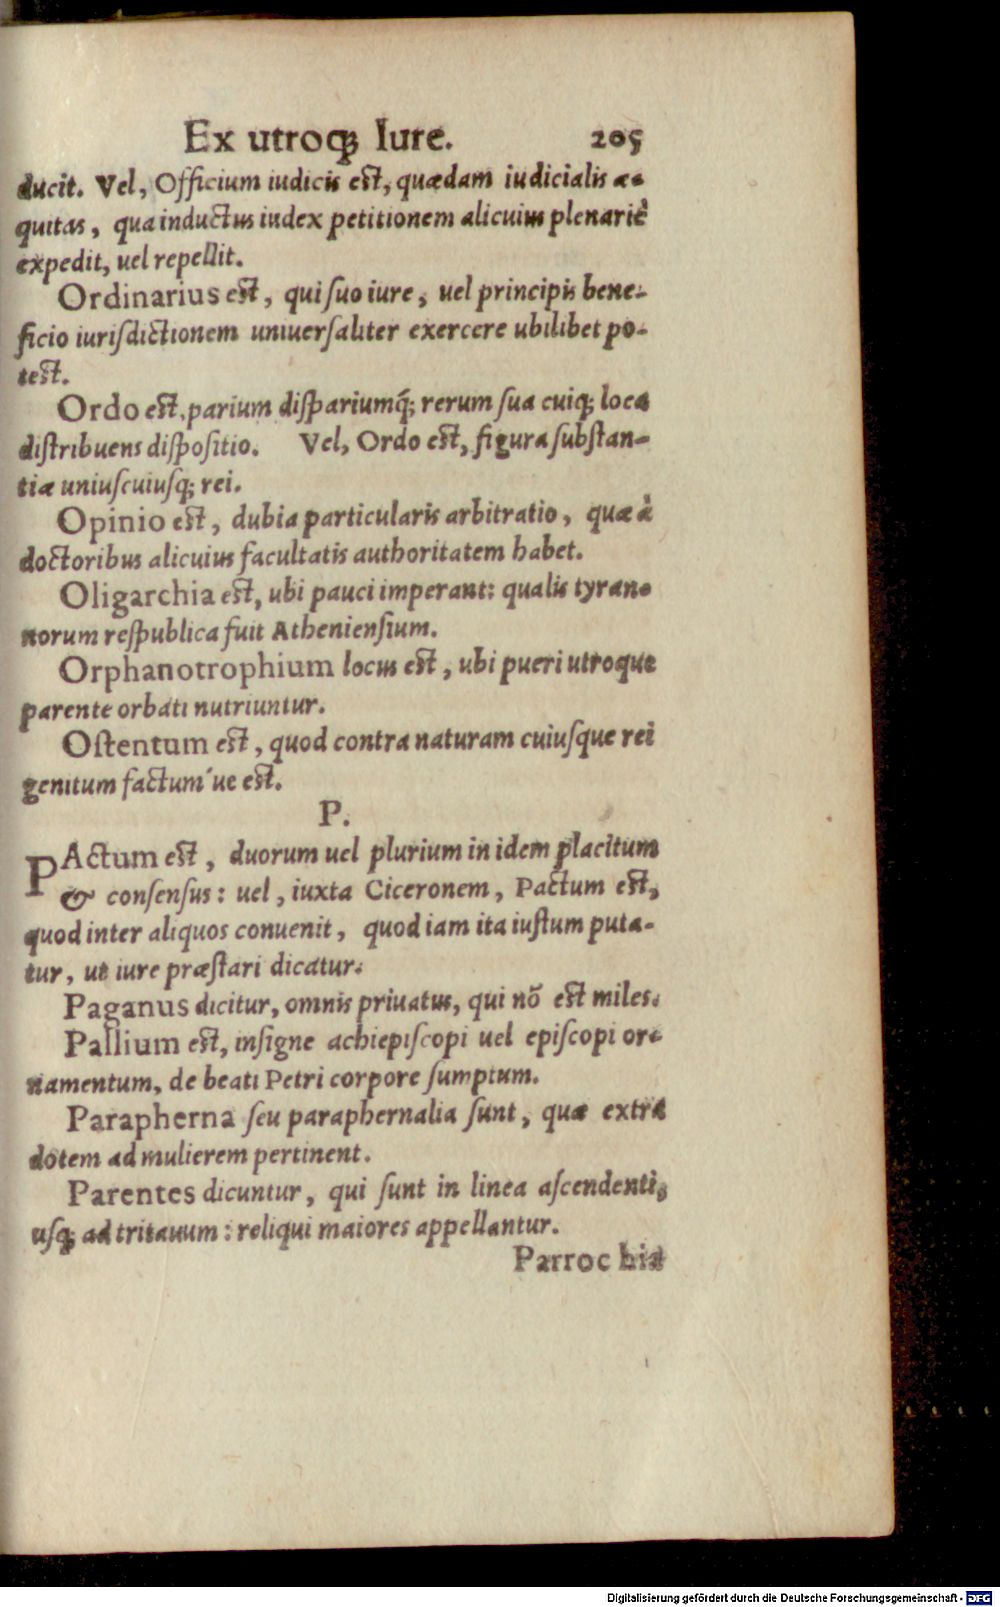 Ex utroq; Iure. 205
ducit. Vel, Officium iudicis est, quædam iudicialis æ-
quitas, qua inductus iudex petitionem alicuius plenariè
expedit, uel repellit.
Ordinarius est, qui suo iure, uel principis bene-
ficio iurisdictionem uniuersaliter exercere ubilibet po-
test.
Ordo est, parium dispariumq́; rerum sua cuiq; loca
distribuens dispositio. Vel, Ordo est, figura substan-
tiæ uniuscuiusq; rei.
Opinio est, dubia particularis arbitratio, quæ à
doctoribus alicuius facultatis authoritatem habet.
Oligarchia est, ubi pauci imperant: qualis tyran-
norum respublica fuit Atheniensium.
Orphanotrophium locus est, ubi pueri utroque
parente orbati nutriuntur.
Ostentum est, quod contra naturam cuiusque rei
genitum factum'ue est.
P.
PActum est, duorum uel plurium in idem placitum
& consensus: uel, iuxta Ciceronem, Pactum est,
quod inter aliquos conuenit, quod iam ita iustum puta-
tur, ut iure præstari dicatur.
Paganus dicitur, omnis priuatus, qui nõ est miles.
Pallium est, insigne achiepiscopi uel episcopi or-
namentum, de beati Petri corpore sumptum.
Parapherna seu paraphernalia sunt, quæ extra
dotem ad mulierem pertinent.
Parentes dicuntur, qui sunt in linea ascendenti,
usq; ad tritauum: reliqui maiores appellantur.
Parrochia
Digitalisierung gefördert durch die Deutsche Forschungsgemeinschaft - DFG